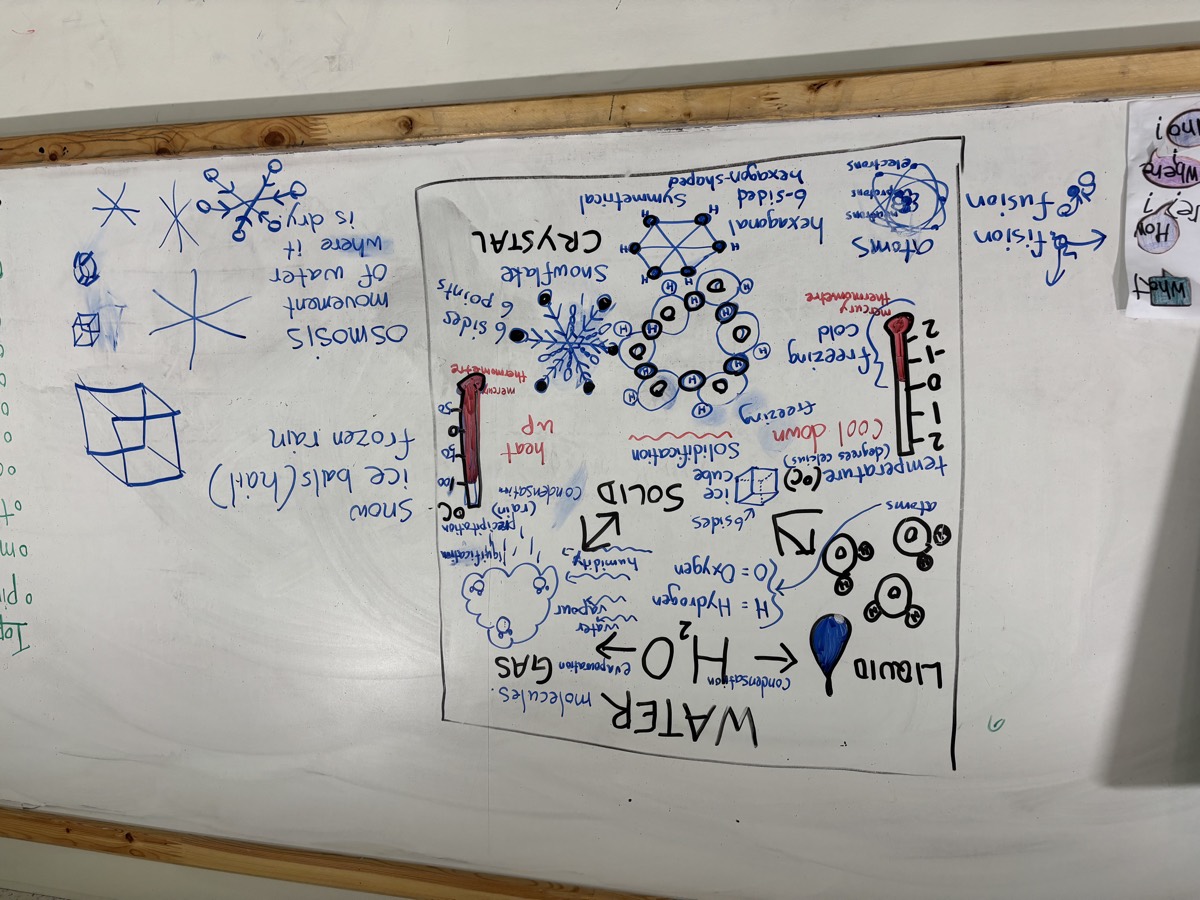 WATER
molecules.
LIQUID
Condensation
H₂O
evaporation
GAS
H = Hydrogen
O = Oxygen
water
vapour
humidity
atoms
O
H
H
O
H
H
O
H
H
liquification
precipitation
(rain)
condensation
SOLID
6 sides
ice
cube
temperature (°C)
(degrees celcius)
2
1
0
-1
2
cool down
freezing
freezing
cold
mercury
thermometre
Solidification
heat
up
°C
100
50
0
50
mercury
thermometre
6 sides
6 points
Snowflake
CRYSTAL
hexagonal
6-sided
hexagon-shaped
Symmetrical
atoms
neutrons
protons
electrons
fision
fusion
Snow
ice bals (hail)
frozen rain
OSMOSIS
movement
of water
where it
is dry.
What
How
where